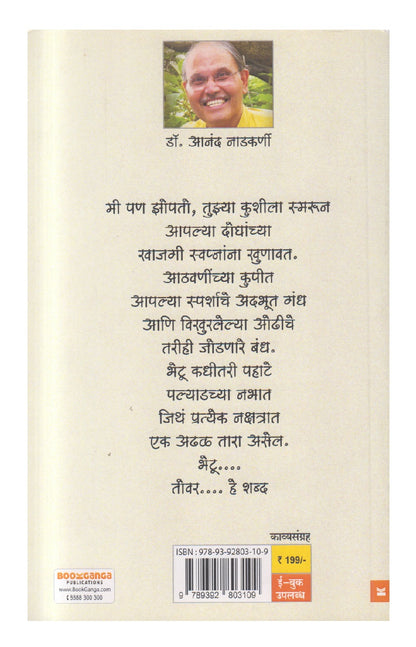 डॉ. आनंद नाडकर्णी
मी पण झोपतो, तुझ्या कुशीला स्मरून
आपल्या दोघांच्या
खाजगी स्वप्नांना खुणावत.
आठवणींच्या कुपीत
आपल्या स्पर्शाचे अदभूत गंध
आणि विखुरलेल्या ओढीचे
तरीही जोडणारे बंध.
भेटू कधीतरी पहाटे
पल्याडच्या नभात
जिथं प्रत्येक नक्षत्रात
एक अढळ तारा असेल.
भेटू....
तोवर.... हे शब्द
काव्यसंग्रह
ISBN : 978-93-92803-10-9
₹ 199/-
ई-बुक
उपलब्ध
9 789392 803109
BOOKGANGA
PUBLICATIONS
www.BookGanga.com
8888 300 300
K